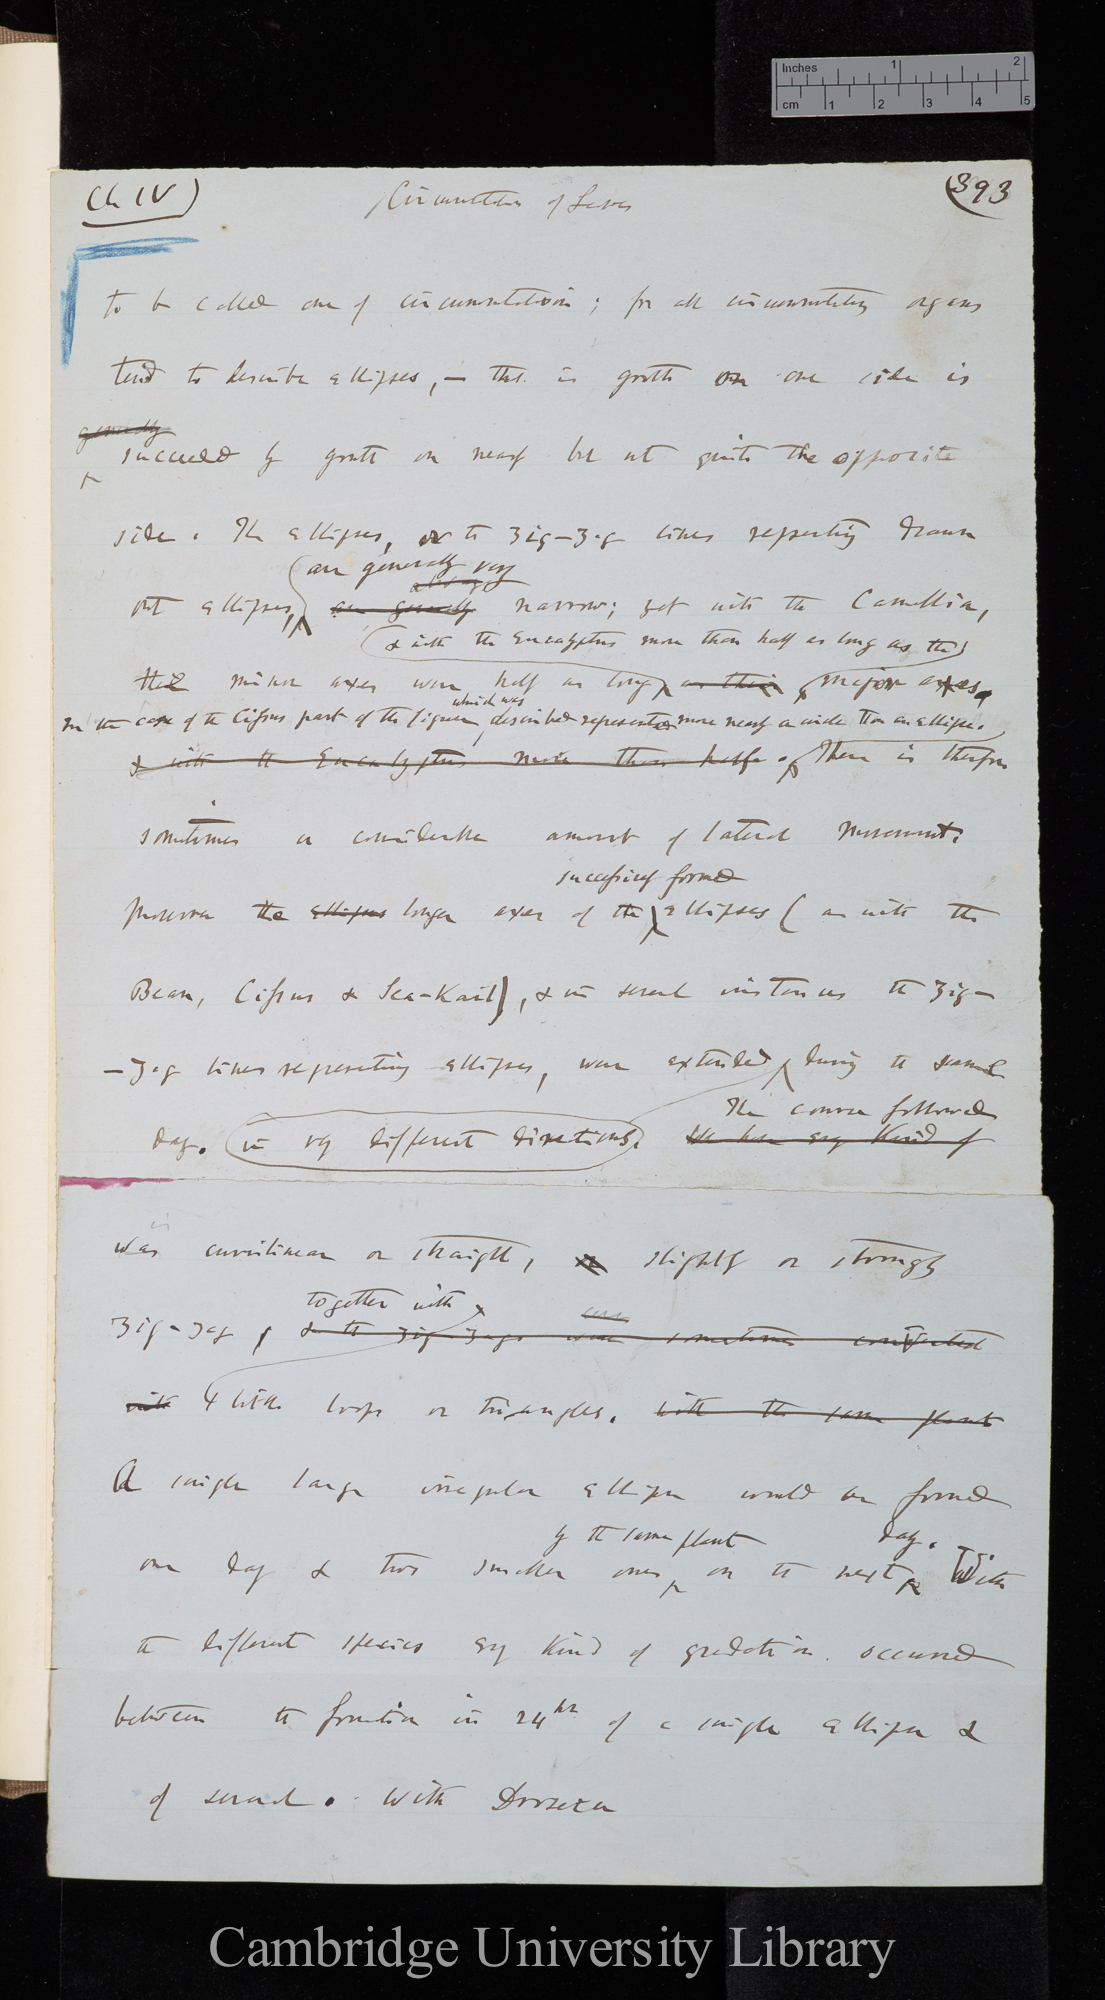 Inches 1 2
cm 1 2 3 4 5
Ch IV) Circumnutation of Leaves (393
to be called one of circumnutation; for all circumnutating organs
tend to describe ellipses, — that is growth on one side is
generally
succeeded by growth on nearly but not quite the opposite
side. The ellipses, or the zig-zag lines representing drawn
are generally very
out ellipses, are generally narrow; yet with the Camellia,
& with the Eucalyptus more than half as long as the
their minor axes were half as long as their major axes.
which was
In the case of the Cissus part of the figure, described represented more nearly a circle than an ellipse.
& with the Eucalyptus more than half. There is therefore
sometimes a considerable amount of lateral movement.
successively formed
Moreover the ellipses longer axes of the ellipses (as with the
Bean, Cissus & Sea-Kail), & in several instances the zig-
-zag lines representing ellipses, were extended during the same
The course followed
day. in very different directions. We have every kind of
was curvilinear or straight, or slightly or strongly
together with
zig-zag, & the zig-zags were sometimes complicated
with little loops or triangles. with the same plant
A single large irregular ellipse would be formed
by the same plant day.
one day & two smaller ones on the next With
the different species every kind of gradation occurred
between the formation in 24 hrs of a single ellipse &
of several. With Drosera
Cambridge University Library